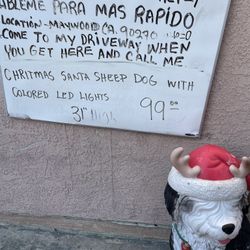 ABLEME PARA MAS RAPIDO
LOCATION- MAYWOOD CA. 90270
COME TO MY DRIVEWAY WHEN
YOU GET HERE AND CALL ME
CHRITMAS SANTA SHEEP DOG WITH
COLORED LED LIGHTS
31" HIGH 99.00